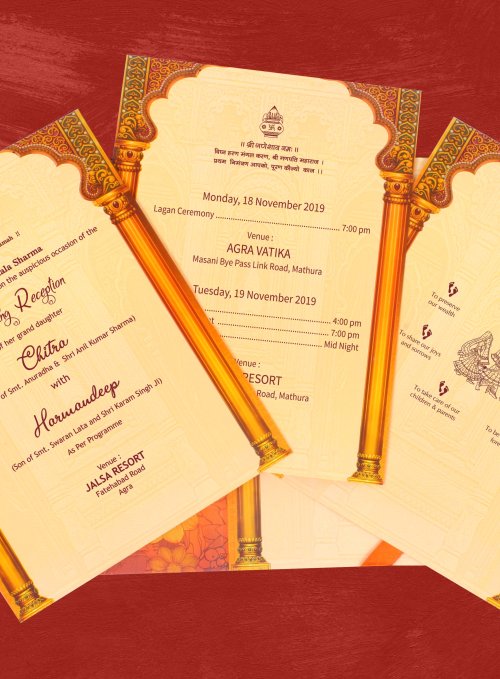 nmah !!
ala Sharma
on the auspicious occasion of the
ng Reception
f her grand daughter
Chitra
of Smt. Anuradha & Shri Anil Kumar Sharma)
with
Harmandeep
(Son of Smt. Swaran Lata and Shri Karam Singh Ji)
As Per Programme
Venue :
JALSA RESORT
Fatehabad Road
Agra
॥ श्री गणेशाय नमः ॥
विघ्न हरण मंगल करण, श्री गणपति महाराज ।
प्रथम निमंत्रण आपको, पूरण कीज्यो काज ।।
Monday, 18 November 2019
Lagan Ceremony ........ 7:00 pm
Venue :
AGRA VATIKA
Masani Bye Pass Link Road, Mathura
Tuesday, 19 November 2019
4:00 pm
7:00 pm
Mid Night
Venue :
RESORT
Road, Mathura
To preserve
our wealth
To share our joys
and sorrows
To take care of our
children & parents
To be